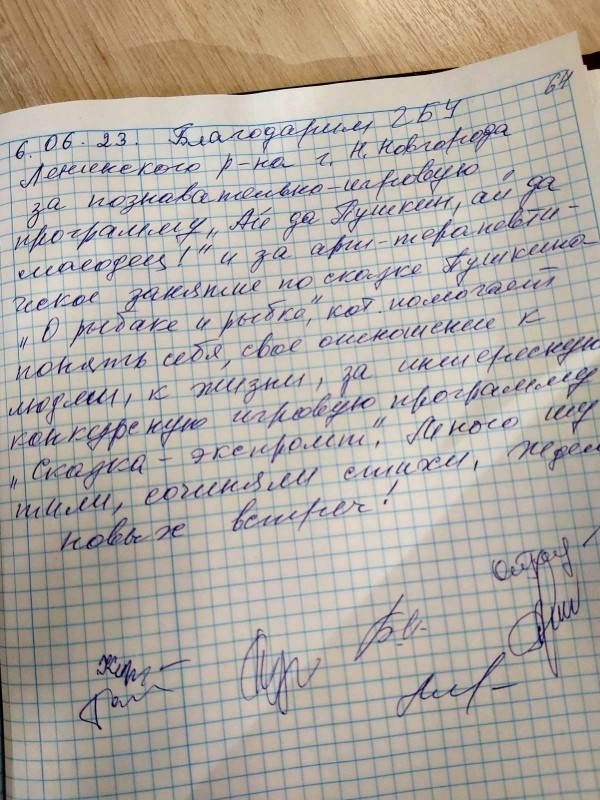 64
6.06.23. Благодарим ГБУ
Ленинского р-на г. Н. Новгорода
за познавательно-игровую
программу „Ай да Пушкин, ай да
молодец!" и за арт-терапевти-
ческое занятие по сказке Пушкина
„О рыбаке и рыбке", кот. помогает
понять себя, свое отношение к
людям, к жизни, за интересную
конкурсную игровую программу
„Сказка-экспромт". Много шу
тили, сочиняли стихи, ждем
новых встреч!